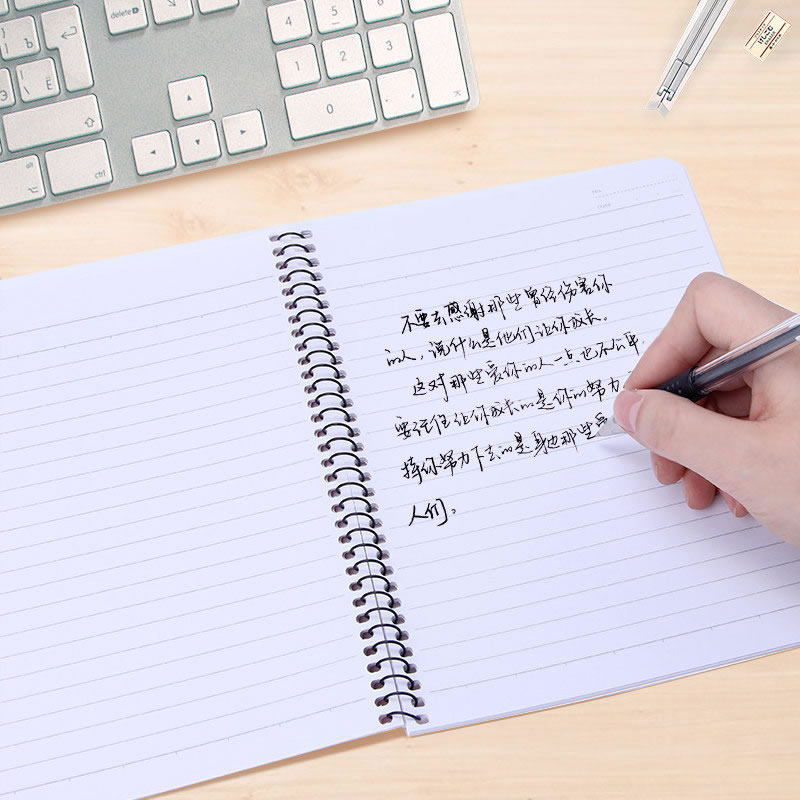 delete
Ъ
Э
Ё
alt
ctrl
4
5
6
1
2
3
0
不要去感谢那些曾经伤害你
的人，说什么是他们让你成长。
这对那些爱你的人一点也不公平，
要记住让你成长的是你的努力，
撑你努力下去的是身边那些爱
人们。